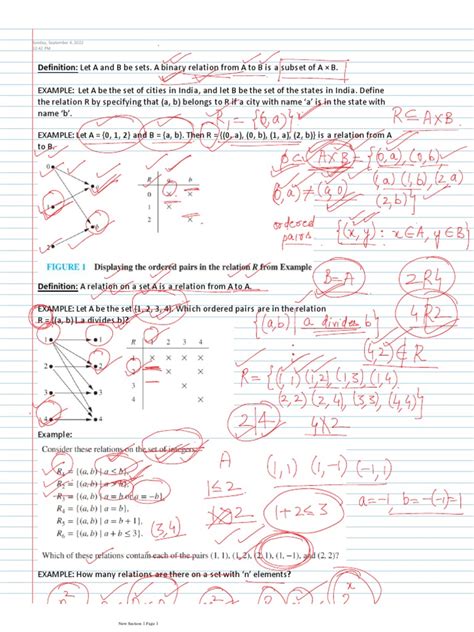 Monday, September 4, 2023
Definition: Let A and B be sets. A binary relation from A to B is a subset of A × B.
EXAMPLE: Let A be the set of cities in India, and let B be the set of the states in India. Define
the relation R by specifying that (a, b) belongs to R if a city with name 'a' is in the state with
name 'b'.
R ⊆ A×B.
EXAMPLE: Let A = {0, 1, 2} and B = {a, b}. Then R = {(0, a), (0, b), (1, a), (2, b)} is a relation from A
to B.
A×B = {(0,a), (0,b),
(1,a) (1,b), (2,a)
(2,b)}
(0,a) ≠ (a,0)
R a b
0 × ×
1 ×
2 ×
ordered
pairs
{(x,y) : x∈A, y∈B}
FIGURE 1 Displaying the ordered pairs in the relation R from Example
B=A
2R4
Definition: A relation on a set A is a relation from A to A.
EXAMPLE: Let A be the set {1, 2, 3, 4}. Which ordered pairs are in the relation
R = {(a, b) | a divides b}?
4R2
{(a,b) | a divides b}
(4,2) ∉ R
R 1 2 3 4
1 × × × ×
2 × ×
3 ×
4 ×
R = {(1,1) (1,2) (1,3), (1,4)
(2,2) (2,4), (3,3) (4,4)}
2|4
4∤2
Example:
Consider these relations on the set of integers:
R₁ = {(a, b) | a ≤ b},
R₂ = {(a, b) | a > b},
R₃ = {(a, b) | a = b or a = −b},
R₄ = {(a, b) | a = b},
R₅ = {(a, b) | a = b + 1},
R₆ = {(a, b) | a + b ≤ 3}.
A
(1,1) (1,-1) (-1,1)
1≤2
a=-1 b=-(-1)=1
1+2≤3
(3,4)
Which of these relations contain each of the pairs (1, 1), (1, 2), (2, 1), (1, −1), and (2, 2)?
EXAMPLE: How many relations are there on a set with 'n' elements?
New Section 1 Page 3